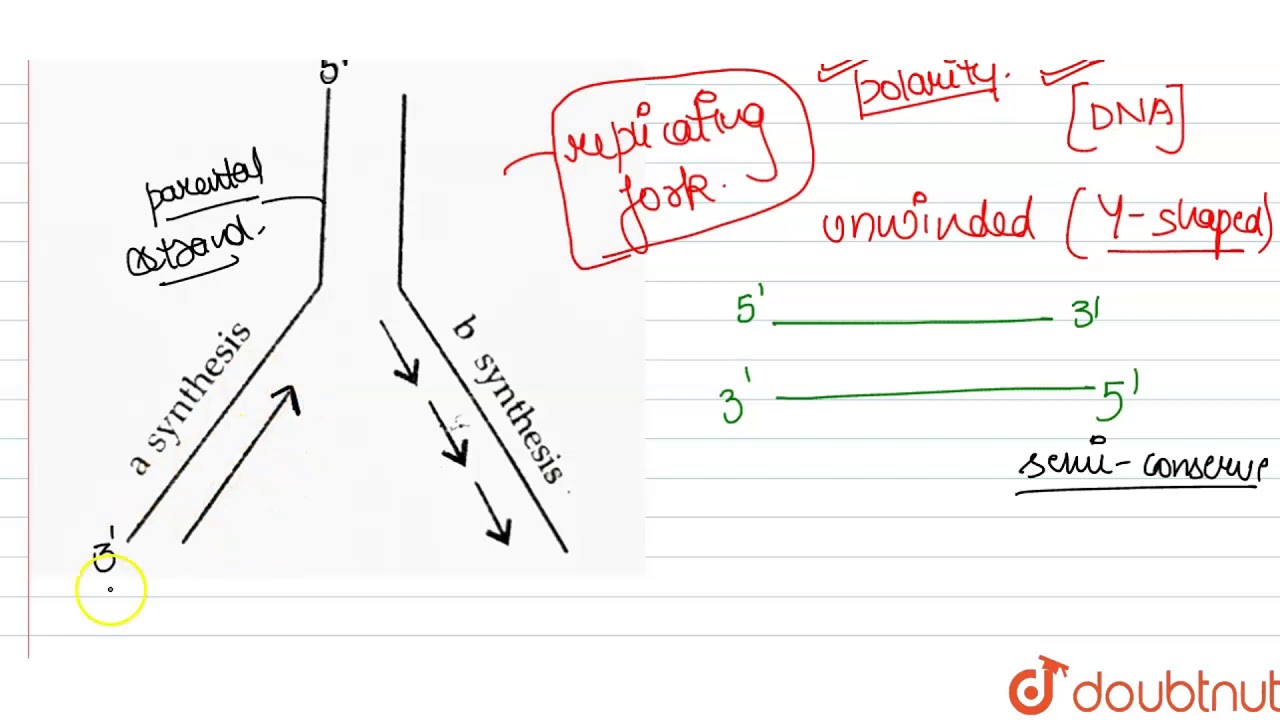 5'
polarity.
[DNA]
replicating
fork.
parental
strand.
unwinded (Y-shaped)
5' 3'
3' 5'
a synthesis
b synthesis
semi-conserv
3'
doubtnut